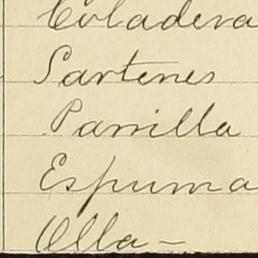 Coladera
Sartenes
Parrilla
Espuma
Olla -